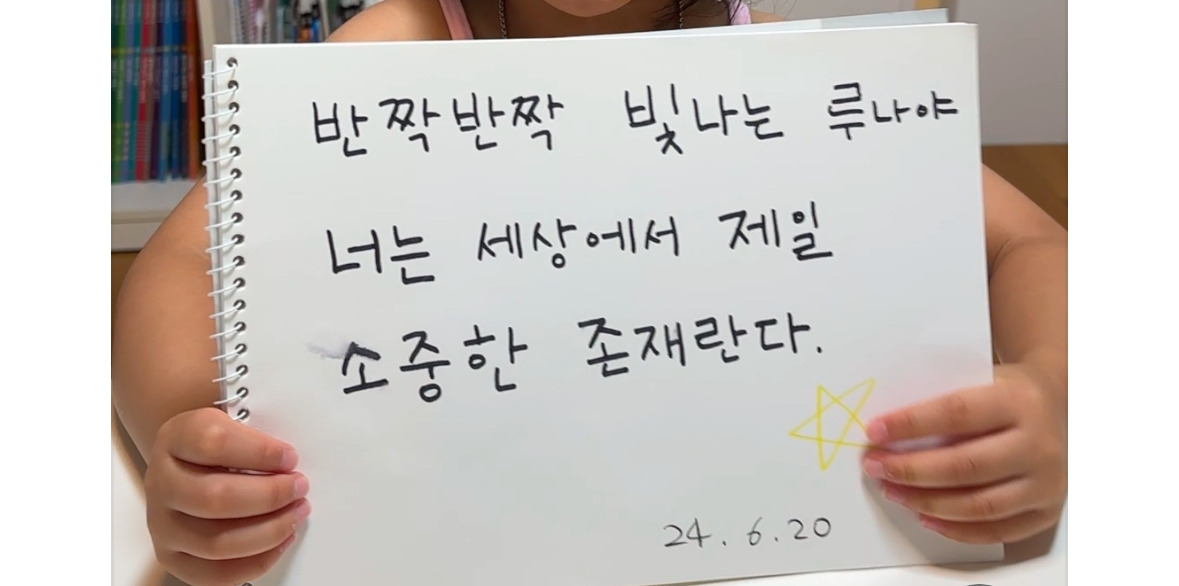 반짝반짝 빛나는 루나야
너는 세상에서 제일
소중한 존재란다.
24. 6. 20